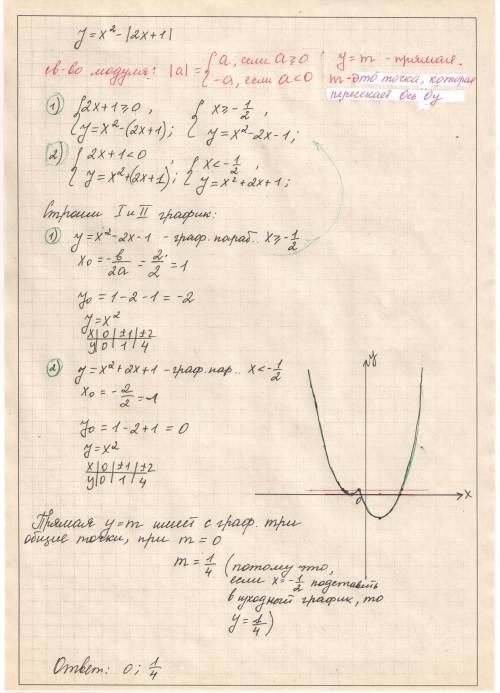 y=x²-|2x+1|
св-во модуля: |a|={a, если a≥0
-a, если a<0
y=m - прямая.
m - это точка, которая
пересекает ось Oy
1) {2x+1≥0, {x≥-1/2,
y=x²-(2x+1); y=x²-2x-1;
2) {2x+1<0, {x<-1/2,
y=x²+(2x+1); y=x²+2x+1;
Строим I и II график:
1) y=x²-2x-1 - граф. параб.. x≥-1/2
x₀=-b/2a=2/2=1
y₀=1-2-1=-2
y=x²
x|0|±1|±2
y|0|1|4
2) y=x²+2x+1 - граф. пар.. x<-1/2
x₀=-2/2=-1
y₀=1-2+1=0
y=x²
x|0|±1|±2
y|0|1|4
y
x
Прямая y=m имеет с граф. три
общие точки, при m=0
m=1/4 (потому что,
если x=-1/2 подставить
в исходный график, то
y=1/4)
Ответ: 0; 1/4